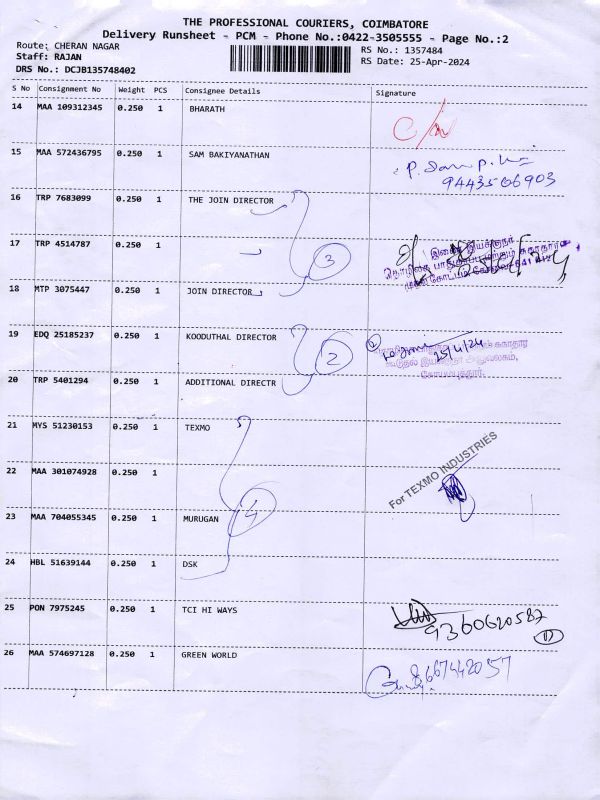 THE PROFESSIONAL COURIERS, COIMBATORE
Delivery Runsheet - PCM - Phone No.:0422-3505555 - Page No.:2
Route: CHERAN NAGAR RS No.: 1357484
Staff: RAJAN RS Date: 25-Apr-2024
DRS No.: DCJB135748402
S No Consignment No Weight PCS Consignee Details Signature
14 MAA 109312345 0.250 1 BHARATH
15 MAA 572436795 0.250 1 SAM BAKIYANATHAN
9443506903
16 TRP 7683099 0.250 1 THE JOIN DIRECTOR
17 TRP 4514787 0.250 1
3
இணை இயக்குநர்
18 MTP 3075447 0.250 1 JOIN DIRECTOR
19 EDQ 25185237 0.250 1 KOODUTHAL DIRECTOR
2
25/4/24
20 TRP 5401294 0.250 1 ADDITIONAL DIRECTR
கோயமுத்தூர்.
21 MYS 51230153 0.250 1 TEXMO
For TEXMO INDUSTRIES
22 MAA 301074928 0.250 1
23 MAA 704055345 0.250 1 MURUGAN
4
24 HBL 51639144 0.250 1 DSK
25 PON 7975245 0.250 1 TCI HI WAYS
9360620587
26 MAA 574697128 0.250 1 GREEN WORLD
8667442057